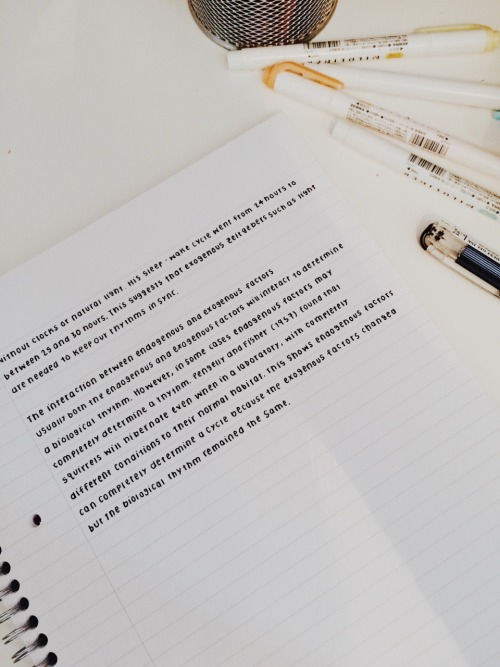 without clocks or natural light his sleep-wake cycle went from 24 hours to
between 25 and 30 hours. This suggests that exogenous zeitgebers such as light
are needed to keep our rhythms in sync.
The interaction between endogenous and exogenous factors
Usually both the endogenous and exogenous factors will interact to determine
a biological rhythm. However, in some cases endogenous factors may
completely determine a rhythm. Pengelly and Fisher (1957) found that
squirrels will hibernate even when in a laboratory, with completely
different conditions to their normal habitat. This shows endogenous factors
can completely determine a cycle because the exogenous factors changed
but the biological rhythm remained the same.